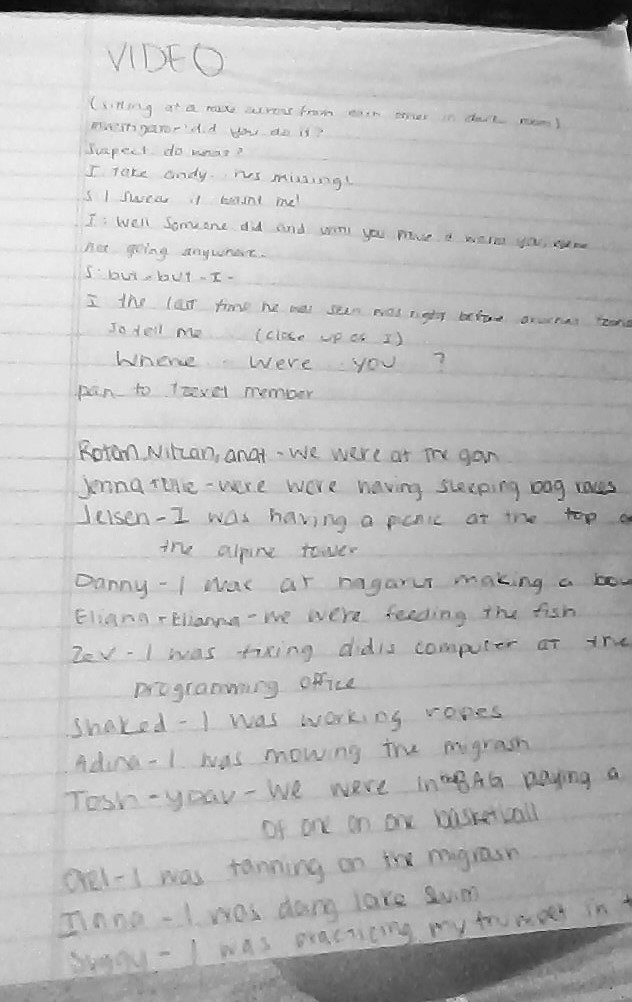 VIDEO
(sitting at a across from each other in dark room)
Investigator: did you do it?
Suspect: do what?
I: take andy. hes missing!
S: I swear it wasnt me!
I: Well someone did and until you prove it wasnt you, were
not going anywhere.
S: but - but - I -
I: the last time he was seen was right before
So tell me (close up of I)
Where were you ?
pan to member
Rotem, Nitzan, anat - we were at the gan
Jenna + - were were having sleeping bag races
Jelsen - I was having a picnic at the top
the alpine tower
Danny - I was at nagarut making a
Eliana + Elianna - we were feeding the fish
Zev - I was fixing didis computer at the
programming office
Shaked - I was working ropes
Adina - I was mowing the migrash
Tosh - yoav - we were in the BAG playing a
of one on one basketball
Orel - I was tanning on the migrash
- I was doing lake swim
- I was practicing my trumpet in